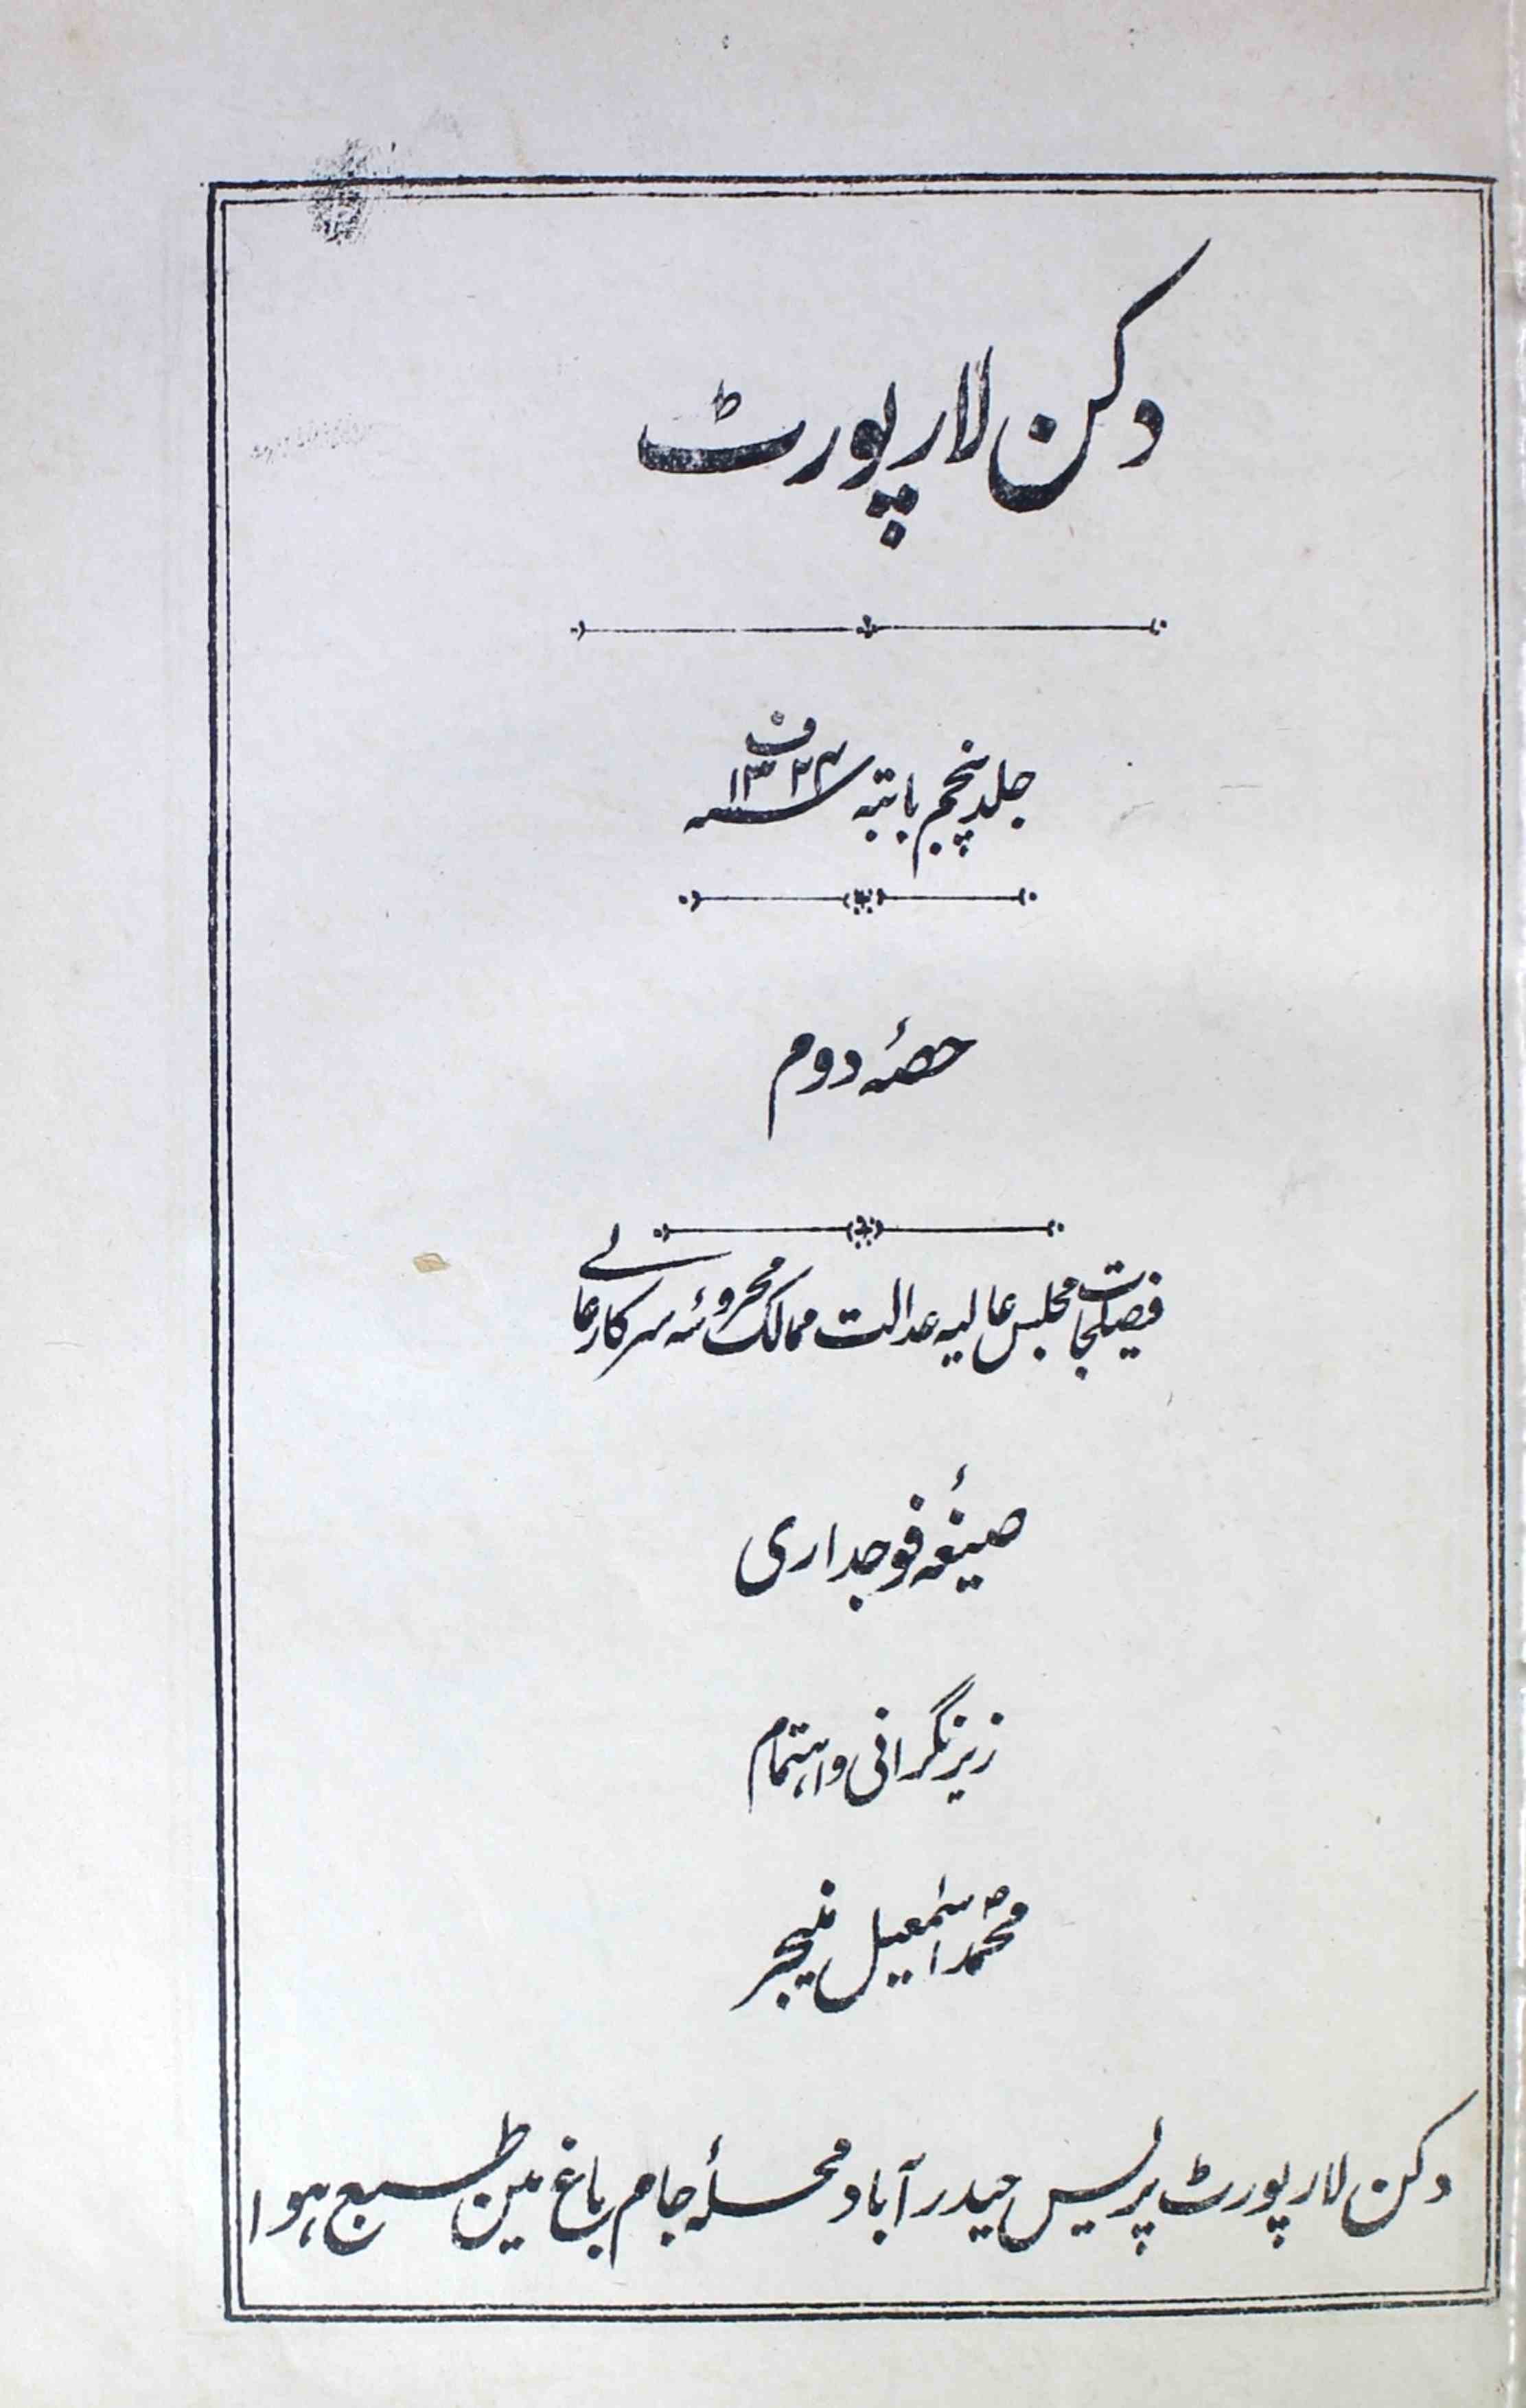 دکن لا رپورٹ
جلد پنجم بابتہ سنہ ۱۳۲۴ف
حصۂ دوم
فیصلجات مجلس عالیہ عدالت ممالک محروسۂ سرکار عالے
صیغۂ فوجداری
زیر نگرانی و اہتمام
محمد اسمٰعیل منیجر
دکن لا رپورٹ پریس حیدرآباد محلۂ جام باغ مین طبع ہوا